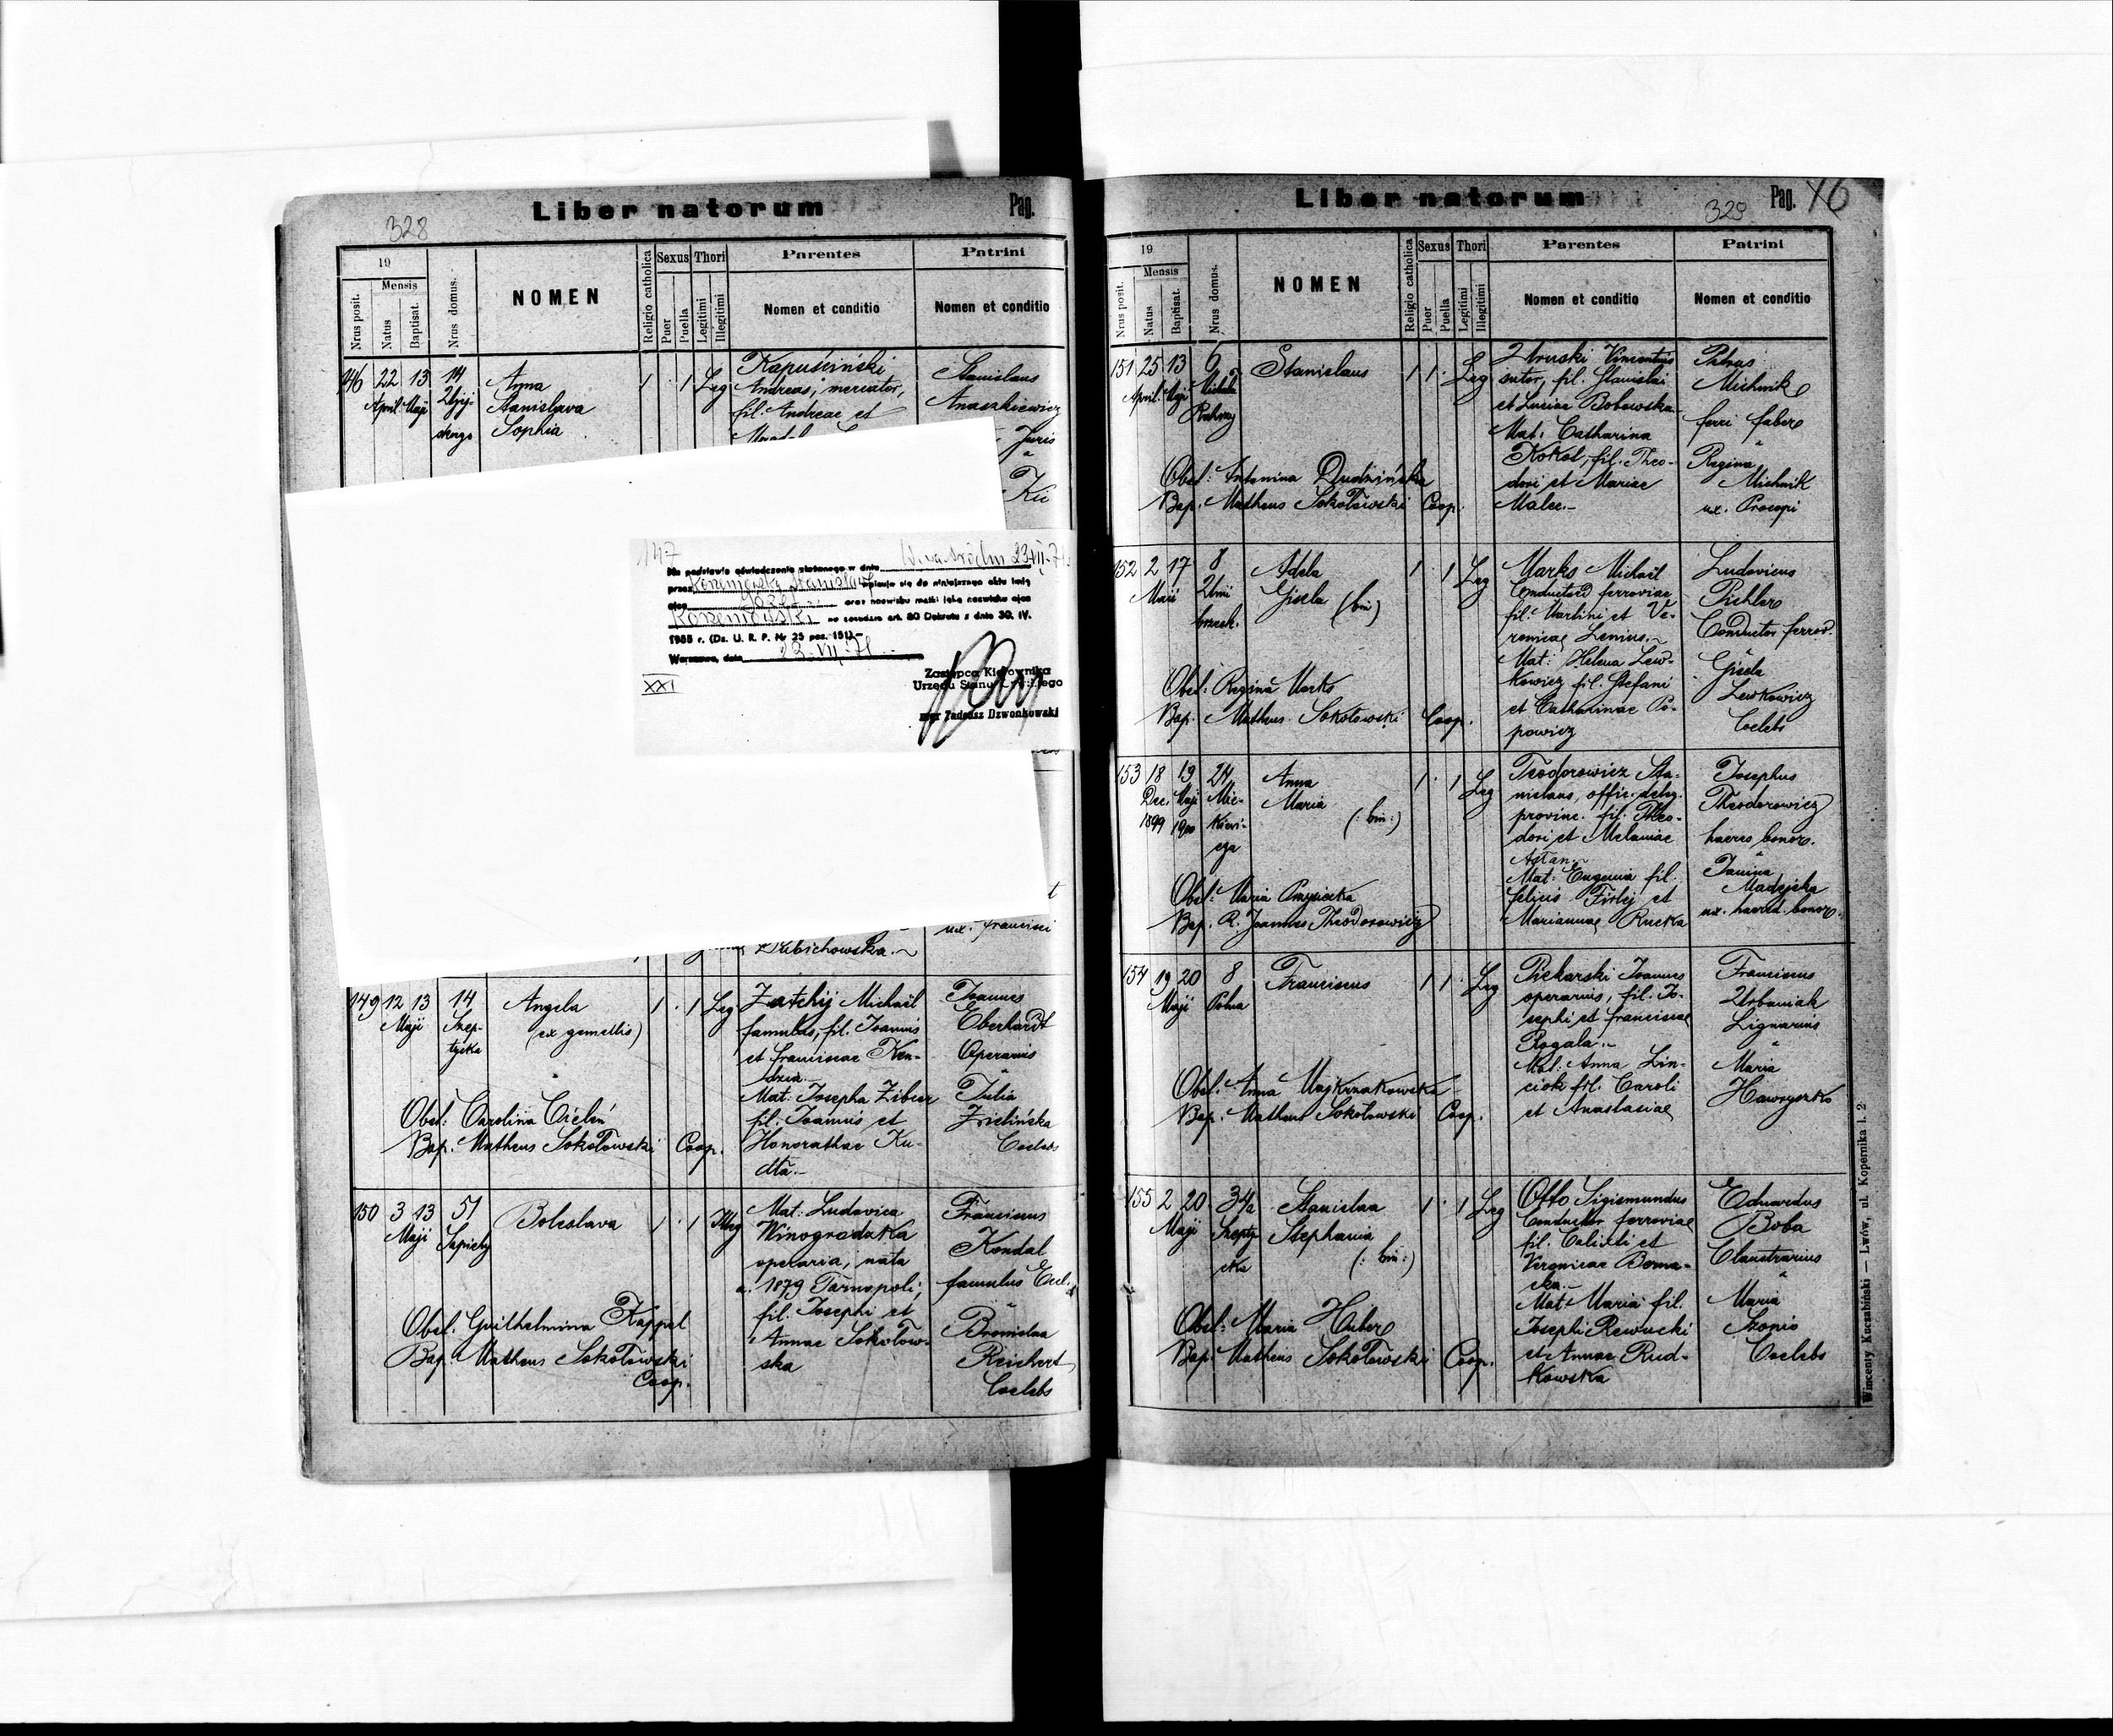 Liber natorum
Pag.
328
19
Mensis
Nrus posit.
Natus
Baptisat.
Nrus domus.
NOMEN
Religio catholica
Sexus
Puer
Puella
Thori
Legitimi
Illegitimi
Parentes
Nomen et conditio
Patrini
Nomen et conditio
146 22 13 14
April. Maji
Anna
Stanislava
Sophia
1 1 Leg
Kapuściński
Andreas, mercator,
fil. Andreae et
Stanislaus
Anaszkiewicz
Juris
147
Na podstawie oświadczenia złożonego w dniu
przez Korzeniowski Stanisław wpisuje się do niniejszego aktu imię
ojca Józef oraz nazwisko matki jako nazwisko ojca
Korzeniowski na zasadzie art. 80 Dekretu z dnia 30. IV.
1955 r. (Dz. U. R. P. Nr 25 poz. 151).—
Warszawa, dnia 23.VII.71
XXI
Zastępca Kierownika
Urzędu Stanu Cywilnego
mgr Tadeusz Dzwonkowski
ux. francisci
149 12 13 14
Maji
Szep-
tycka
Angela
(ex gemellis)
1 1 Leg
Zatchij Michaël
famulus, fil. Joannis
et franciscae Ken-
dzia.
Mat: Josepha Zibur
fil. Joannis et
Honorathae Ku-
dła.-
Joannes
Eberhardt
Operarius
Julia
Zielińska
Coelebs
Obst: Carolina Cieleń
Bap. Matheus Sokołowski Coop.
150 3 13 51
Maji Sapiehy
Boleslava
1 1 Illeg
Mat: Ludovica
Winogrodzka
operaria, nata
a. 1879 Tarnopoli,
fil. Josephi et
Annae Sokołow-
ska
Franciscus
Kondal
famulus Eccl.
Bronislaa
Reichert
Coelebs
Obst. Guilhelmina Kappel
Bap. Matheus Sokołowski
Coop.
Liber natorum
329
Pag. 76
19
Mensis
Nrus posit.
Natus
Baptisat.
Nrus domus.
NOMEN
Religio catholica
Sexus
Puer
Puella
Thori
Legitimi
Illegitimi
Parentes
Nomen et conditio
Patrini
Nomen et conditio
151 25 13 6
April. Maji
Stanislaus
1 1 Leg
Hruski Vincentius
sutor, fil. Stanislai
et Luciae Bobowska
Mat: Catharina
Kokot, fil. Theo-
dori et Mariae
Malec.-
Petrus
Michnik
ferri faber
Regina
Michnik
ux. Procopi
Obst: Antonina Dudzińska
Bap. Matheus Sokołowski Coop.
152 2 17 8
Maji
Adela
Gisela (bin)
1 1 Leg
Marks Michaël
Conductor ferroviae
fil. Martini et Ve-
ronicae Lenius.
Mat: Helena Lew-
kowicz fil. Stefani
et Catharinae Po-
powicz
Ludovicus
Pichler
Conductor ferrov.
Gisela
Lewkowicz
Coelebs
Obst: Regina Marks
Bap. Matheus Sokołowski Coop.
153 18 19 24
Dec. Maji
1899 1900
Mic-
kiewi-
cza
Anna
Maria (: bin :)
1 1 Leg
Teodorowicz Sta-
nislaus, offic.
provinc. fil. Theo-
dori et Melaniae
Mat: Eugenia fil.
felicis Firlej et
Mariannae Rucka
Josephus
Theodorowicz
haeres bonor.
Janina
Madejska
ux. haered. bonor.
Obst: Maria
Bap. R. Joannes Theodorowicz
154 19 20 8
Maji Polna
Franciscus
1 1 Leg
Piekarski Joannes
operarius, fil. Jo-
sephi et franciscae
Rogala.-
Mat: Anna Lin-
ciok fil. Caroli
et Anastasiae
Franciscus
Urbaniak
Lignarius
Maria
Hawryszko
Obst: Anna Majkrzakowska
Bap. Matheus Sokołowski Coop.
155 2 20 34a
Maji
Szepty
cka
Stanislaa
Stephania
(: bin :)
1 1 Leg
Otto Sigismundus
Conductor ferroviae
fil. Calixti et
Veronicae Berna-
cka.-
Mat Maria fil.
Josephi Rewucki
et Annae Rud-
kowska
Eduardus
Boba
Claustrarius
Maria
Szonio
Coelebs
Obst: Maria Huber
Bap. Matheus Sokołowski Coop.
Wincenty Kuczabiński — Lwów, ul. Kopernika l. 2